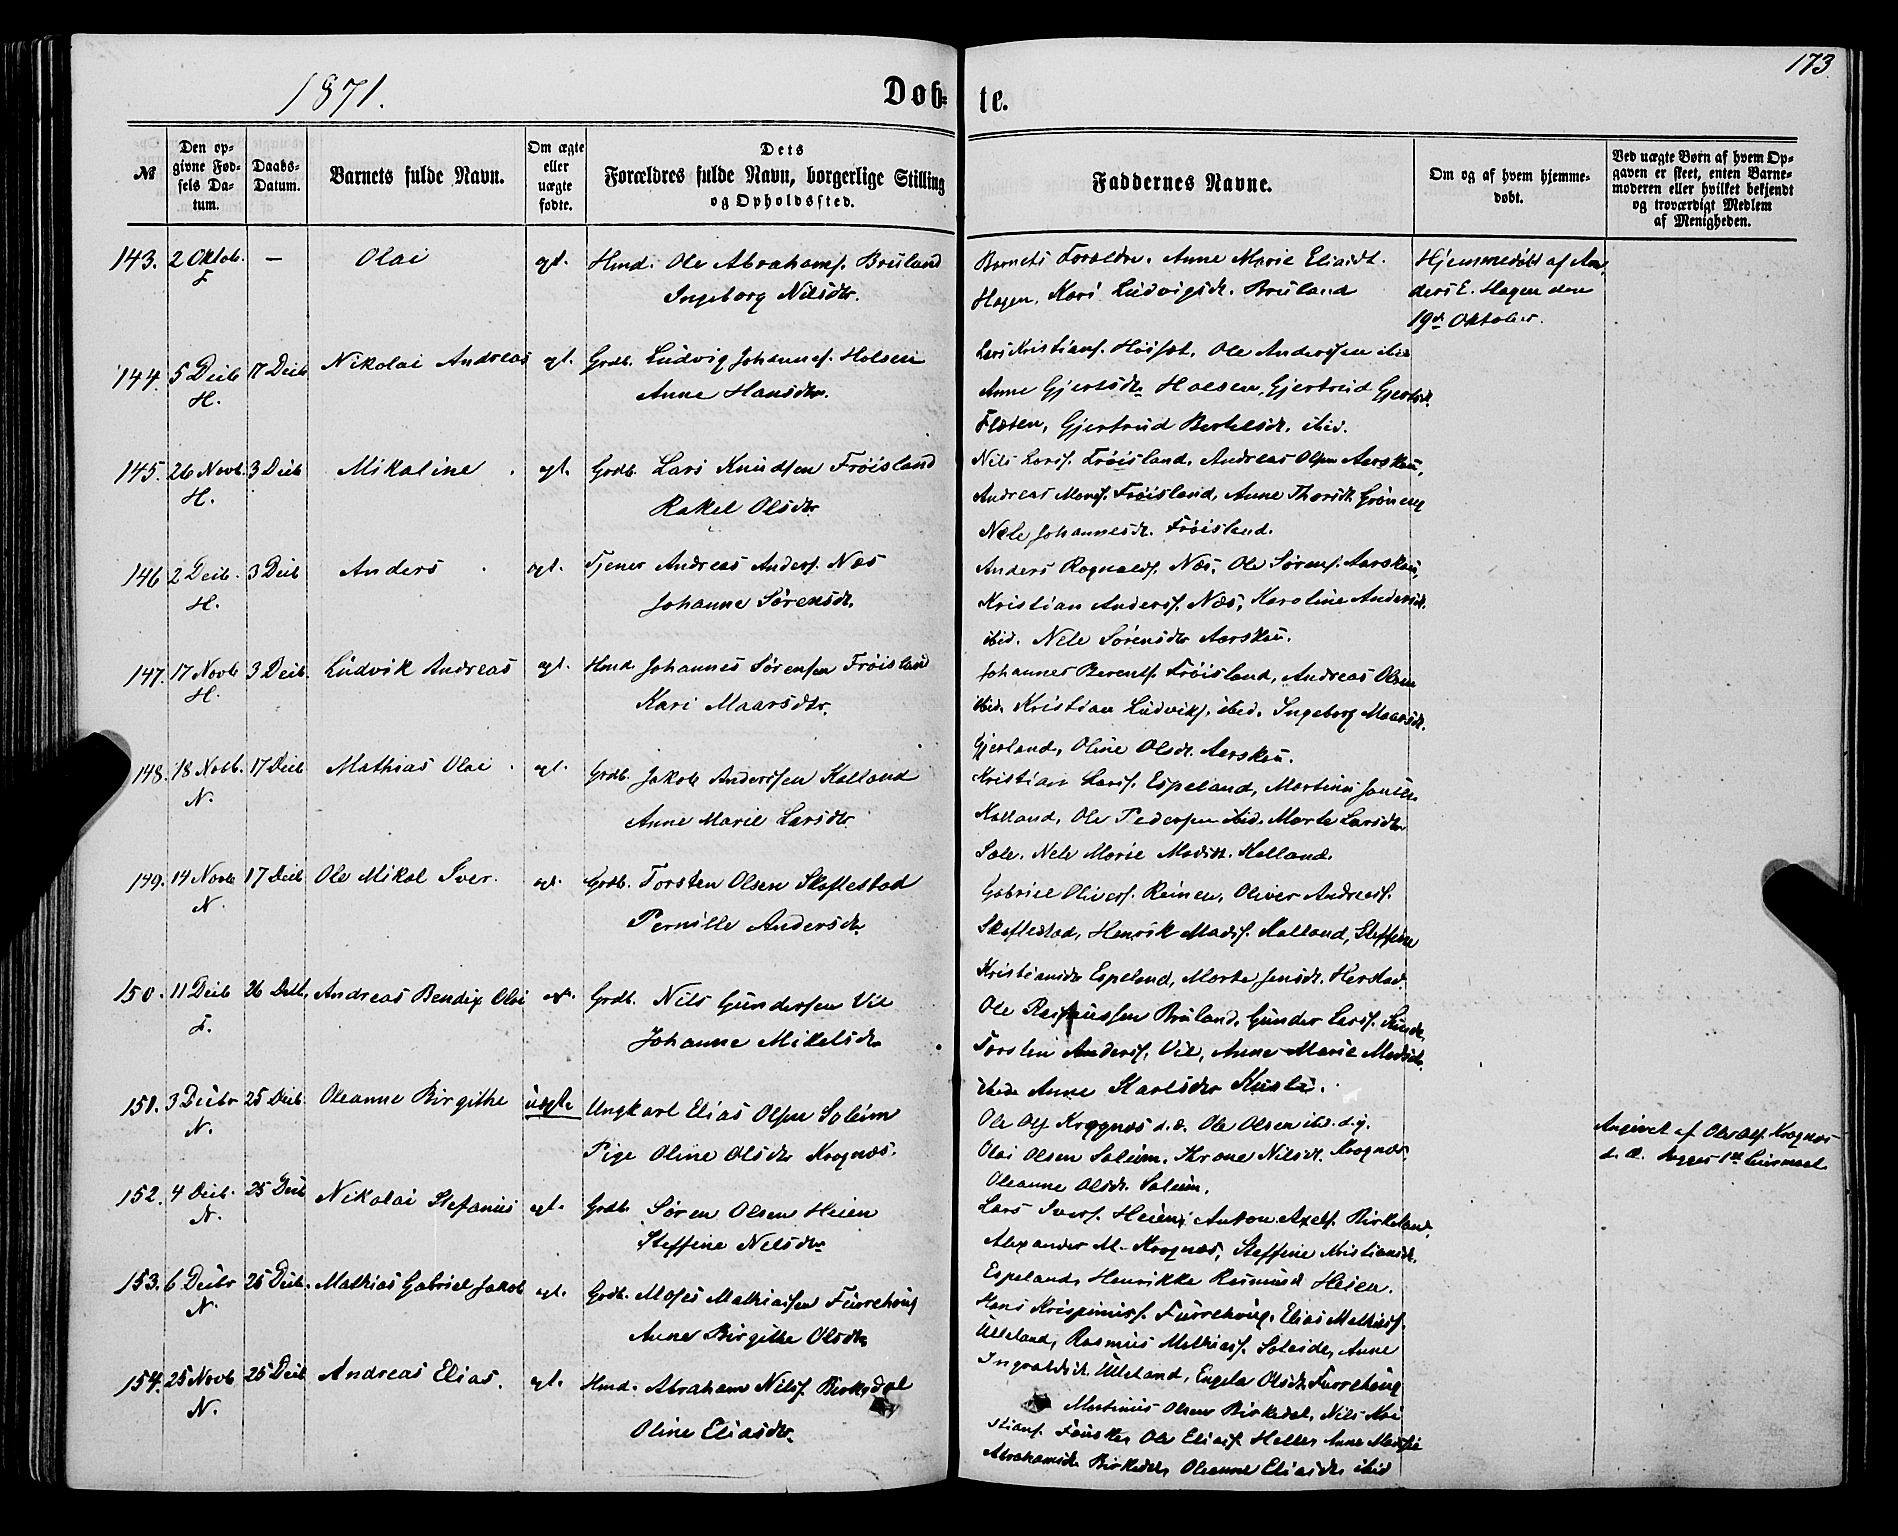 173
1871.
Døb-
te.
№
Den op-
givne Fød-
sels Da-
tum.
Daabs-
Datum.
Barnets fulde Navn.
Om ægte
eller
uægte
fødte.
Dets
Forældres fulde Navn, borgerlige Stilling
og Opholdssted.
Faddernes Navne.
Om og af hvem hjemme-
døbt.
Ved uægte Børn af hvem Op-
gaven er skeet, enten Barne-
moderen eller hvilket bekjendt
og troværdigt Medlem
af Menigheden.
143. 2 Oktob. — Olai ægt. Hmd. Ole Abrahams. Bruland
F Ingeborg Nilsdtr.
Barnets Forældre, Anne Marie Eliasdt.
Hagen, Kari Ludvigsdt. Bruland
Hjemmedøbt af An-
ders E. Hagen den
19de Oktober.
144. 5 Decb 17 Decb Nikolai Andreas ægt. Grdb. Ludvig Johannes. Holsen
H. Anne Hansdtr.
Lars Kristians. Høisæt, Ole Anderssen ibid
Anne Gjertsdtr Holsen, Gjertrud Gjertsdt.
Flæten, Gjertrud Bertelsdt. ibid.
145. 26 Novb. 3 Decb Mikaline ægt. Grdb. Lars Knudsen Frøisland
H. Rakel Olsdtr
Nils Larss. Frøisland, Andreas Olsen Aarskau,
Andreas Mons. Frøisland, Anne Thorsdt. Grøneng
Nele Johannesdt. Frøisland.
146 2 Decb. 3 Decb Anders ægt. Tjener Andreas Anders. Næs
H. Johanne Sørensdt.
Anders Ragnalds. Næs, Ole Sørens. Aarskau,
Kristian Anderss. Næs, Karoline Andersdt.
ibid. Nele Sørensdtr Aarskau.
147. 17 Novb 3 Decb. Ludvik Andreas ægt. Hmd. Johannes Sørensen Frøisland
H. Kari Maarsdtr.
Johannes Berents. Frøisland, Andreas Olsen
ibid. Kristian Ludviks. ibid. Ingeborg Maarsdt.
Gjerland, Oline Olsdt. Aarskau.
148. 18 Novb. 17 Decb Mathias Olai ægt. Grdb. Jakob Anderssen Kalland
N. Anne Marie Larsdtr.
Kristian Larss. Espeland, Martinus
Kalland, Ole Pedersen ibid. Marte Larsdtr
Sale. Nele Marie Madsdt. Kalland.
149. 14 Novb 17 Decb Ole Mikal Iver. ægt. Grdb. Torsten Olsen Skaftestad
N. Pernille Andersdtr
Gabriel Olivers. Reinen, Oliver Andreass.
Skaftestad, Henrik Madss. Kalland, Steffine
Kristiansdtr Espeland, Marte Jensdt. Herstad.
150. 11 Decb 26 Decb. Andreas Bendix Olai ægt. Grdb. Nils Gundersen Vie
F. Johanne Mikelsdtr
Ole Rasmussen Bruland, Gunder Larss. Kunde,
Torsten Anderss. Vie, Anne Marie Madsdtr.
ibid. Anne Karlsdtr
151. 3 Decbr 25 Decb. Oleanne Birgithe uægte Ungkarl Elias Olsen Soleim
N. Pige Oline Olsdtr Krognæs.
Ole Ols. Krognæs d.æ. Ole Olsen ibd. d.y.
Olai Olsen Soleim, Krone Nilsdt. Krognæs.
Oleanne Olsdt. Soleim.
Angivet af Ole Ols. Krognæs
d. æ. begges 1ste Leiermaal.
152. 4 Decb. 25 Decb Nikolai Stefanus ægt. Grdb. Søren Olsen Heien
N. Steffine Nelsdtr
Lars Ivers. Heien, Anton Axels. Birkeland,
Alexander M. Krognæs, Steffine Kristiansdt.
Espeland, Henrikke Rasmusd. Heien.
153. 6 Decbr 25 Decb. Mathias Gabriel Jakob ægt. Grdb. Moses Mathiassen Furrehoug
N. Anne Birgithe Olsdtr
Hans Krispinuss. Furrehoug, Elias Mathiass.
Ulleland, Rasmus Mathiass. Soleide, Anne
Ingvaldsdt. Ulleland, Engela Olsdt. Furrehoug
154. 25 Novb 25 Decb Andreas Elias. ægt. Hmd. Abraham Nilss. Birkedal
N. Oline Eliasdtr.
Martinus Olsen Birkedal, Nils Kri
stians. Fauske, Ole Eliass. Helle, Anne Marthe
Abrahamsdt. Birkedal, Oleanne Eliasdt. ibid